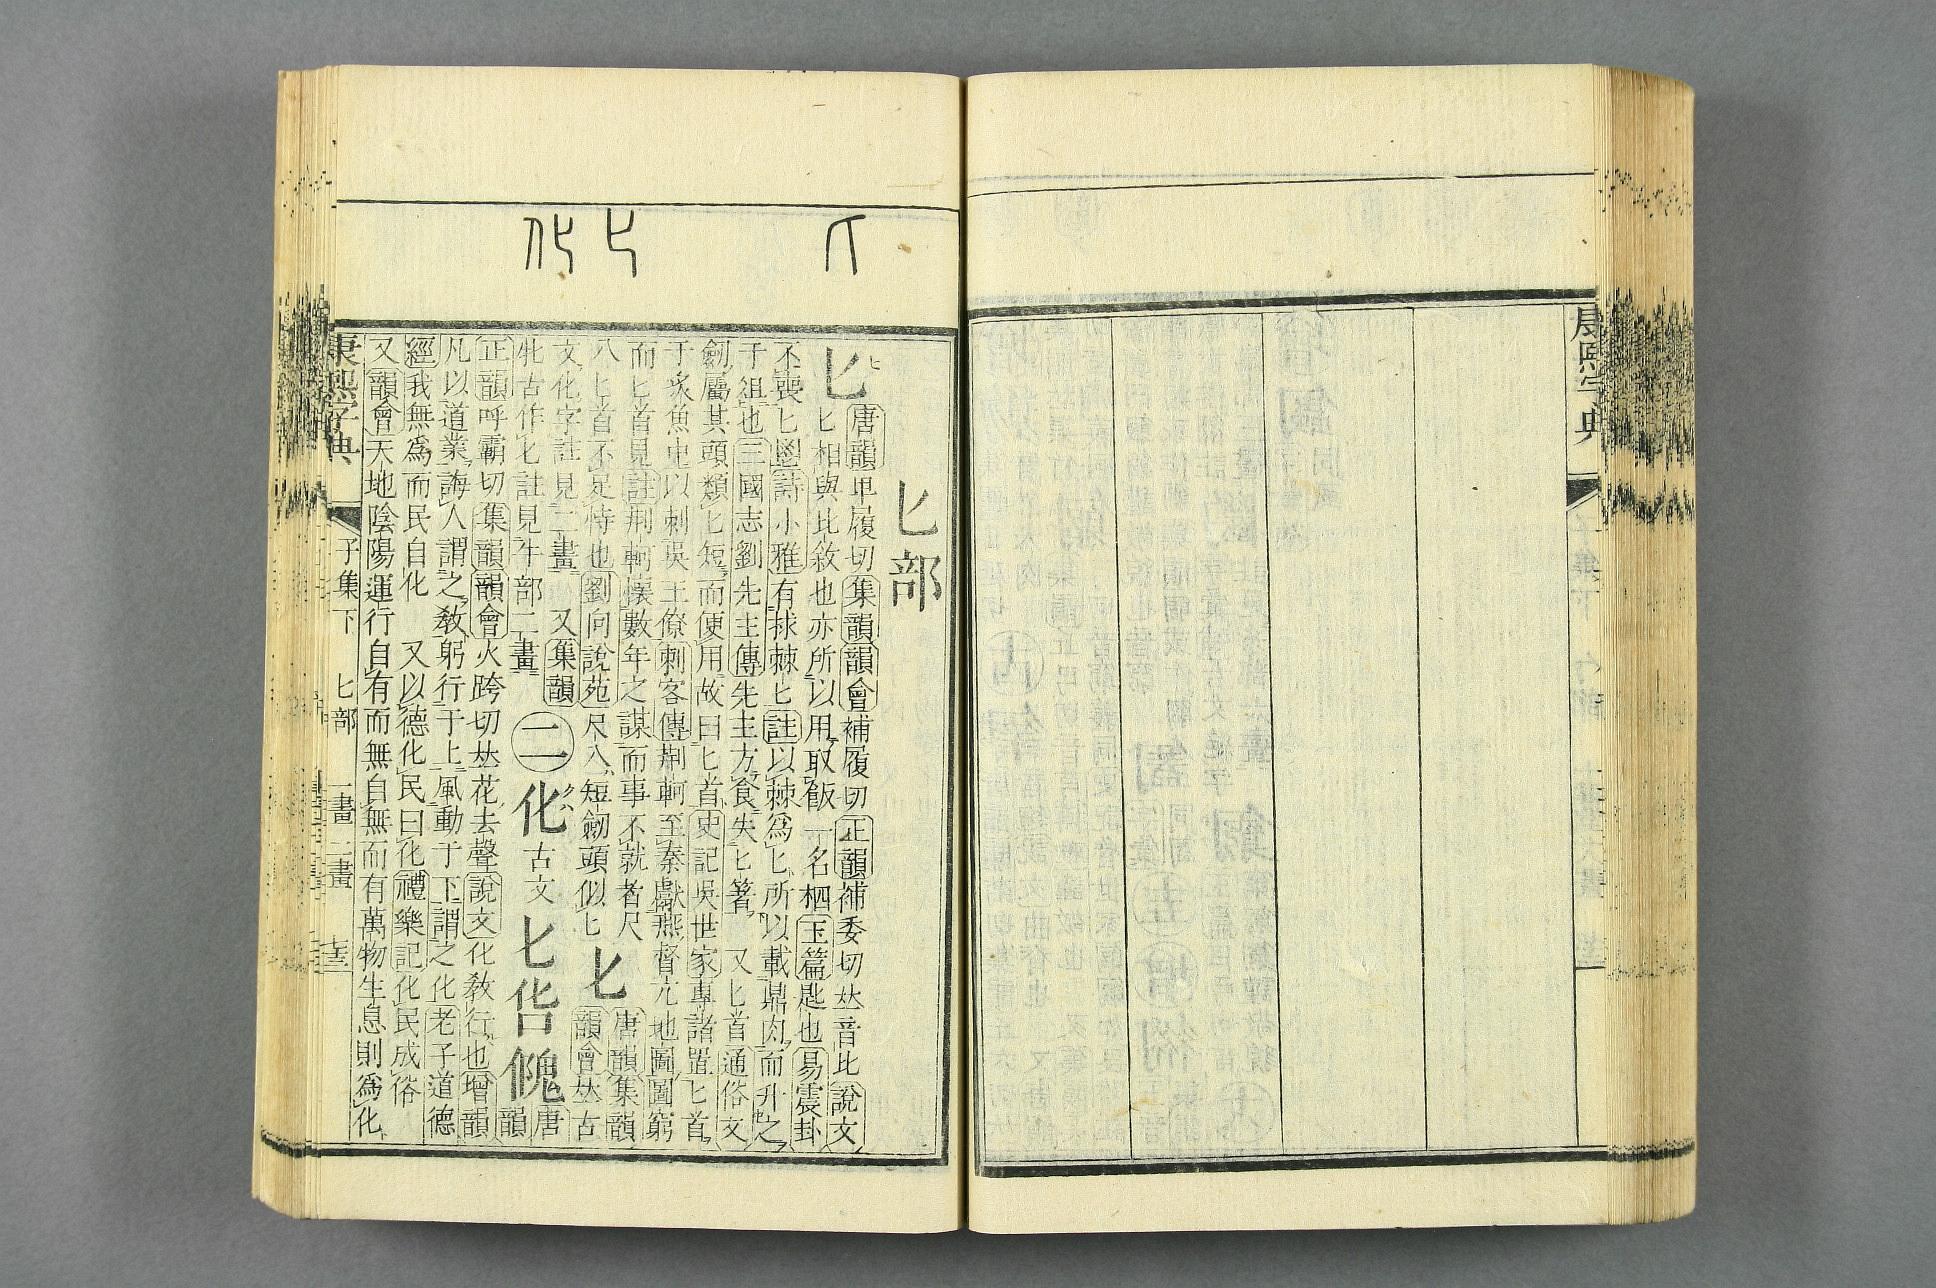 康熙字典 子集下 勹部
匕部
匕 唐韻卑履切集韻韻會補履切正韻補委切𠀤音比說文
匕相與比敘也亦所以用取飯一名柶玉篇匙也易震卦
不喪匕鬯詩小雅有捄棘匕註以棘爲匕所以載鼎肉而升之
于俎也三國志劉先主傳先主方食失匕箸 又匕首通俗文
劒屬其頭類匕短而便用故曰匕首史記吳世家專諸置匕首
于炙魚中以刺吳王僚刺客傳荆軻至秦獻燕督亢地圖圖窮
而匕首見註荆軻懷數年之謀而事不就者尺
八匕首不足恃也劉向說苑尺八短劒頭似匕
𠤎 唐韻集韻
韻會𠀤古
文化字註見二畫 又集韻
牝古作匕註見牛部二畫
㊁化 古文 𠤎𠰴𠏁 唐韻
正韻呼霸切集韻韻會火跨切𠀤花去聲說文化敎行也增韻
凡以道業誨人謂之敎躬行于上風動于下謂之化老子道德
經我無爲而民自化 又以德化民曰化禮樂記化民成俗
又韻會天地陰陽運行自有而無自無而有萬物生息則爲化
康熙字典 子集下 匕部 一畫 二畫